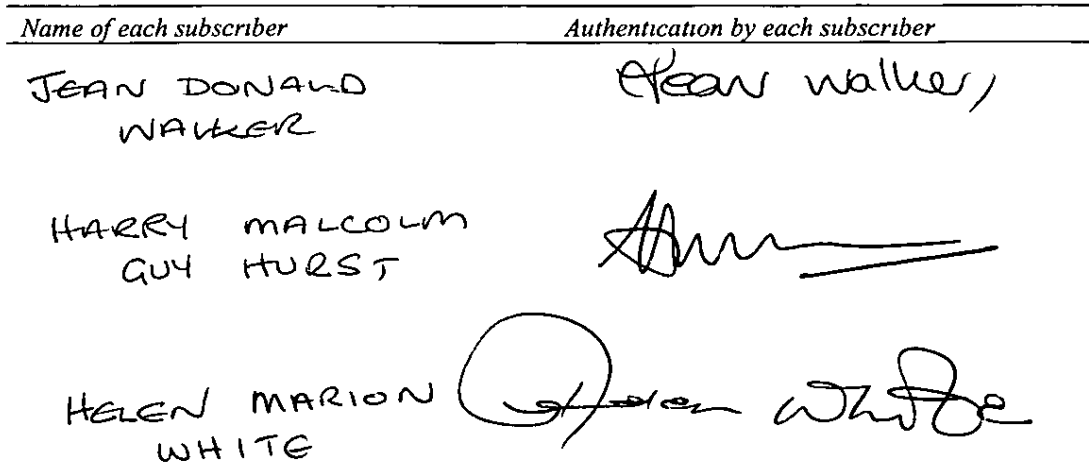 Name of each subscriber Authentication by each subscriber
JEAN DONALD Jean Walker,
WALKER
HARRY MALCOLM
GUY HURST
HELEN MARION Helen White
WHITE